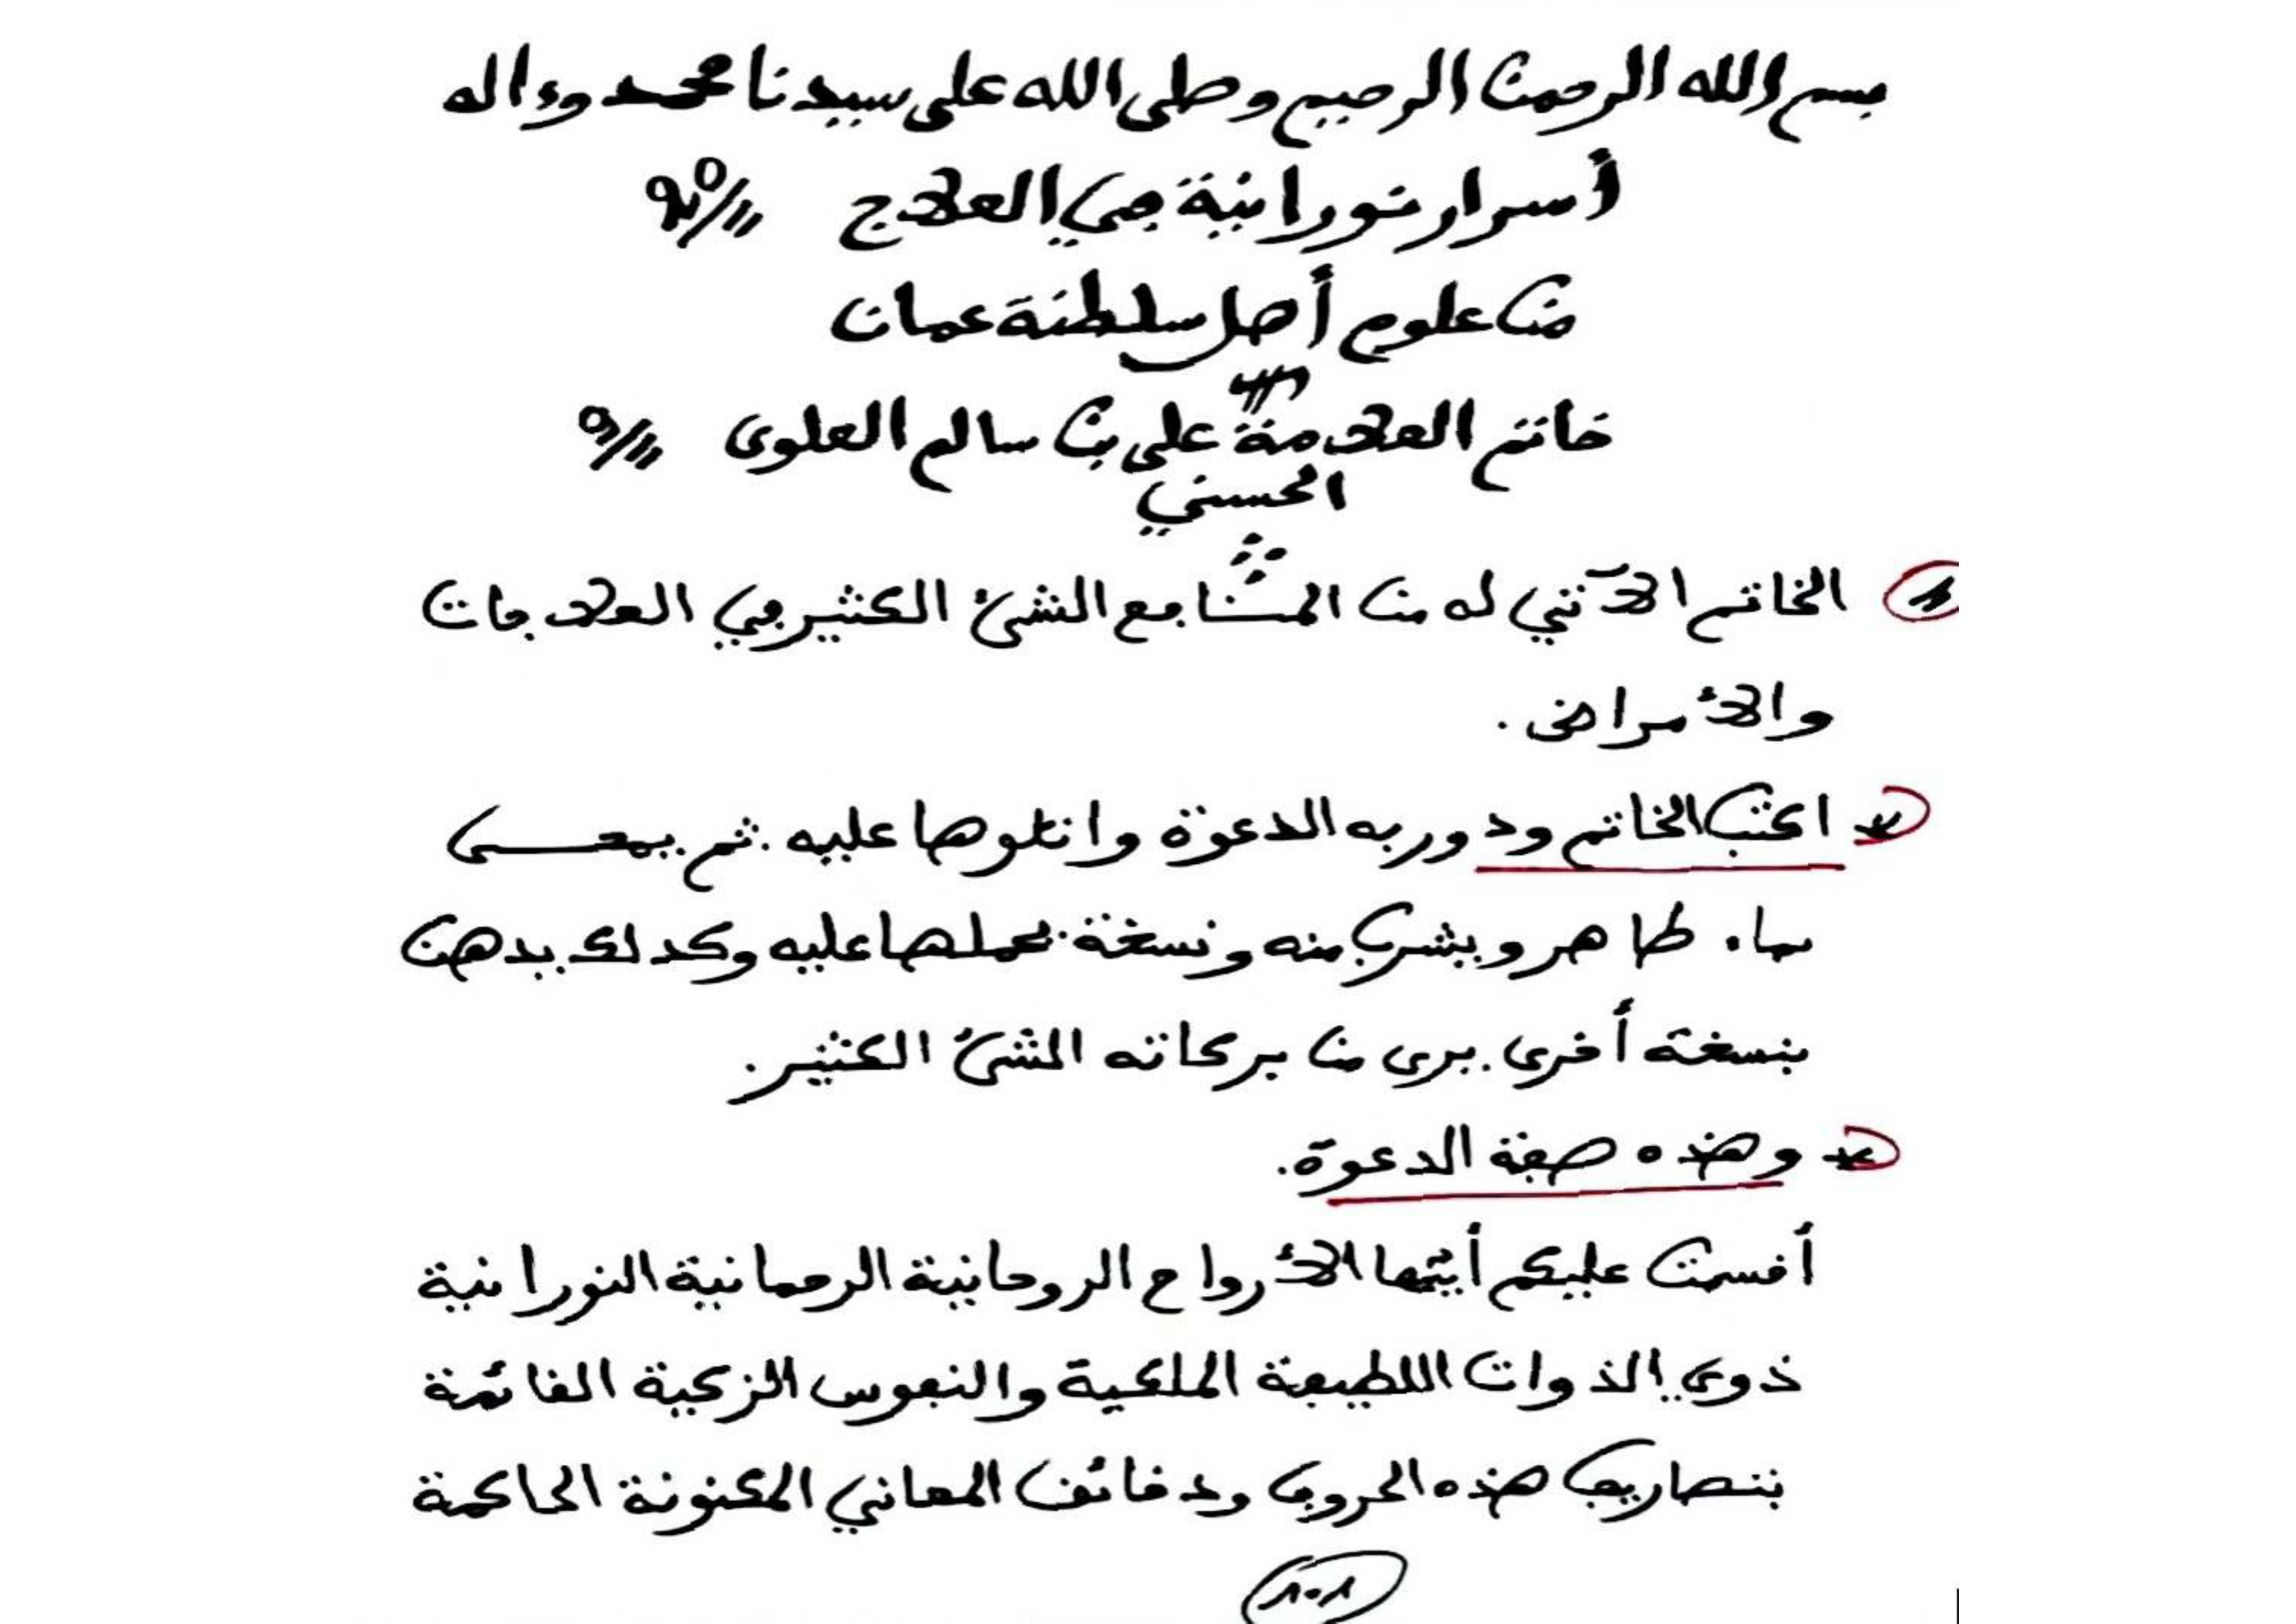 بسم الله الرحمن الرحيم وصلى الله على سيدنا محمد وءاله
أسرار نورانية في العلاج
من علوم أهل سلطنة عمان
خاتم العلامة علي بن سالم العلوي
الحسني
الخاتم الآتي له من المنافع الشئ الكثير في العلاجات
والأمراض.
اكتب الخاتم ودور به الدعوة واتلوها عليه ثم يمحى
بماء طاهر ويشرب منه ونسخة يحملها عليه وكدلك يدهن
بنسخة أخرى. يرى من بركاته الشئ الكثير.
وهذه صفة الدعوة.
أقسمت عليكم أيتها الأرواح الروحانية الرحمانية النورانية
ذوي الذوات اللطيفة الملكية والنفوس الزكية القائمة
بتصاريف هذه الحروف ودقائق المعاني المكنونة الحاكمة